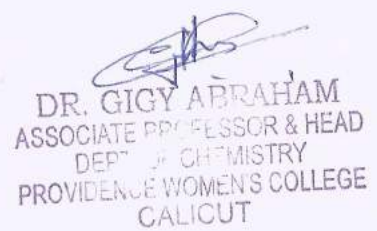 DR. GIGY ABRAHAM
ASSOCIATE PROFESSOR & HEAD
DEPT OF CHEMISTRY
PROVIDENCE WOMEN'S COLLEGE
CALICUT